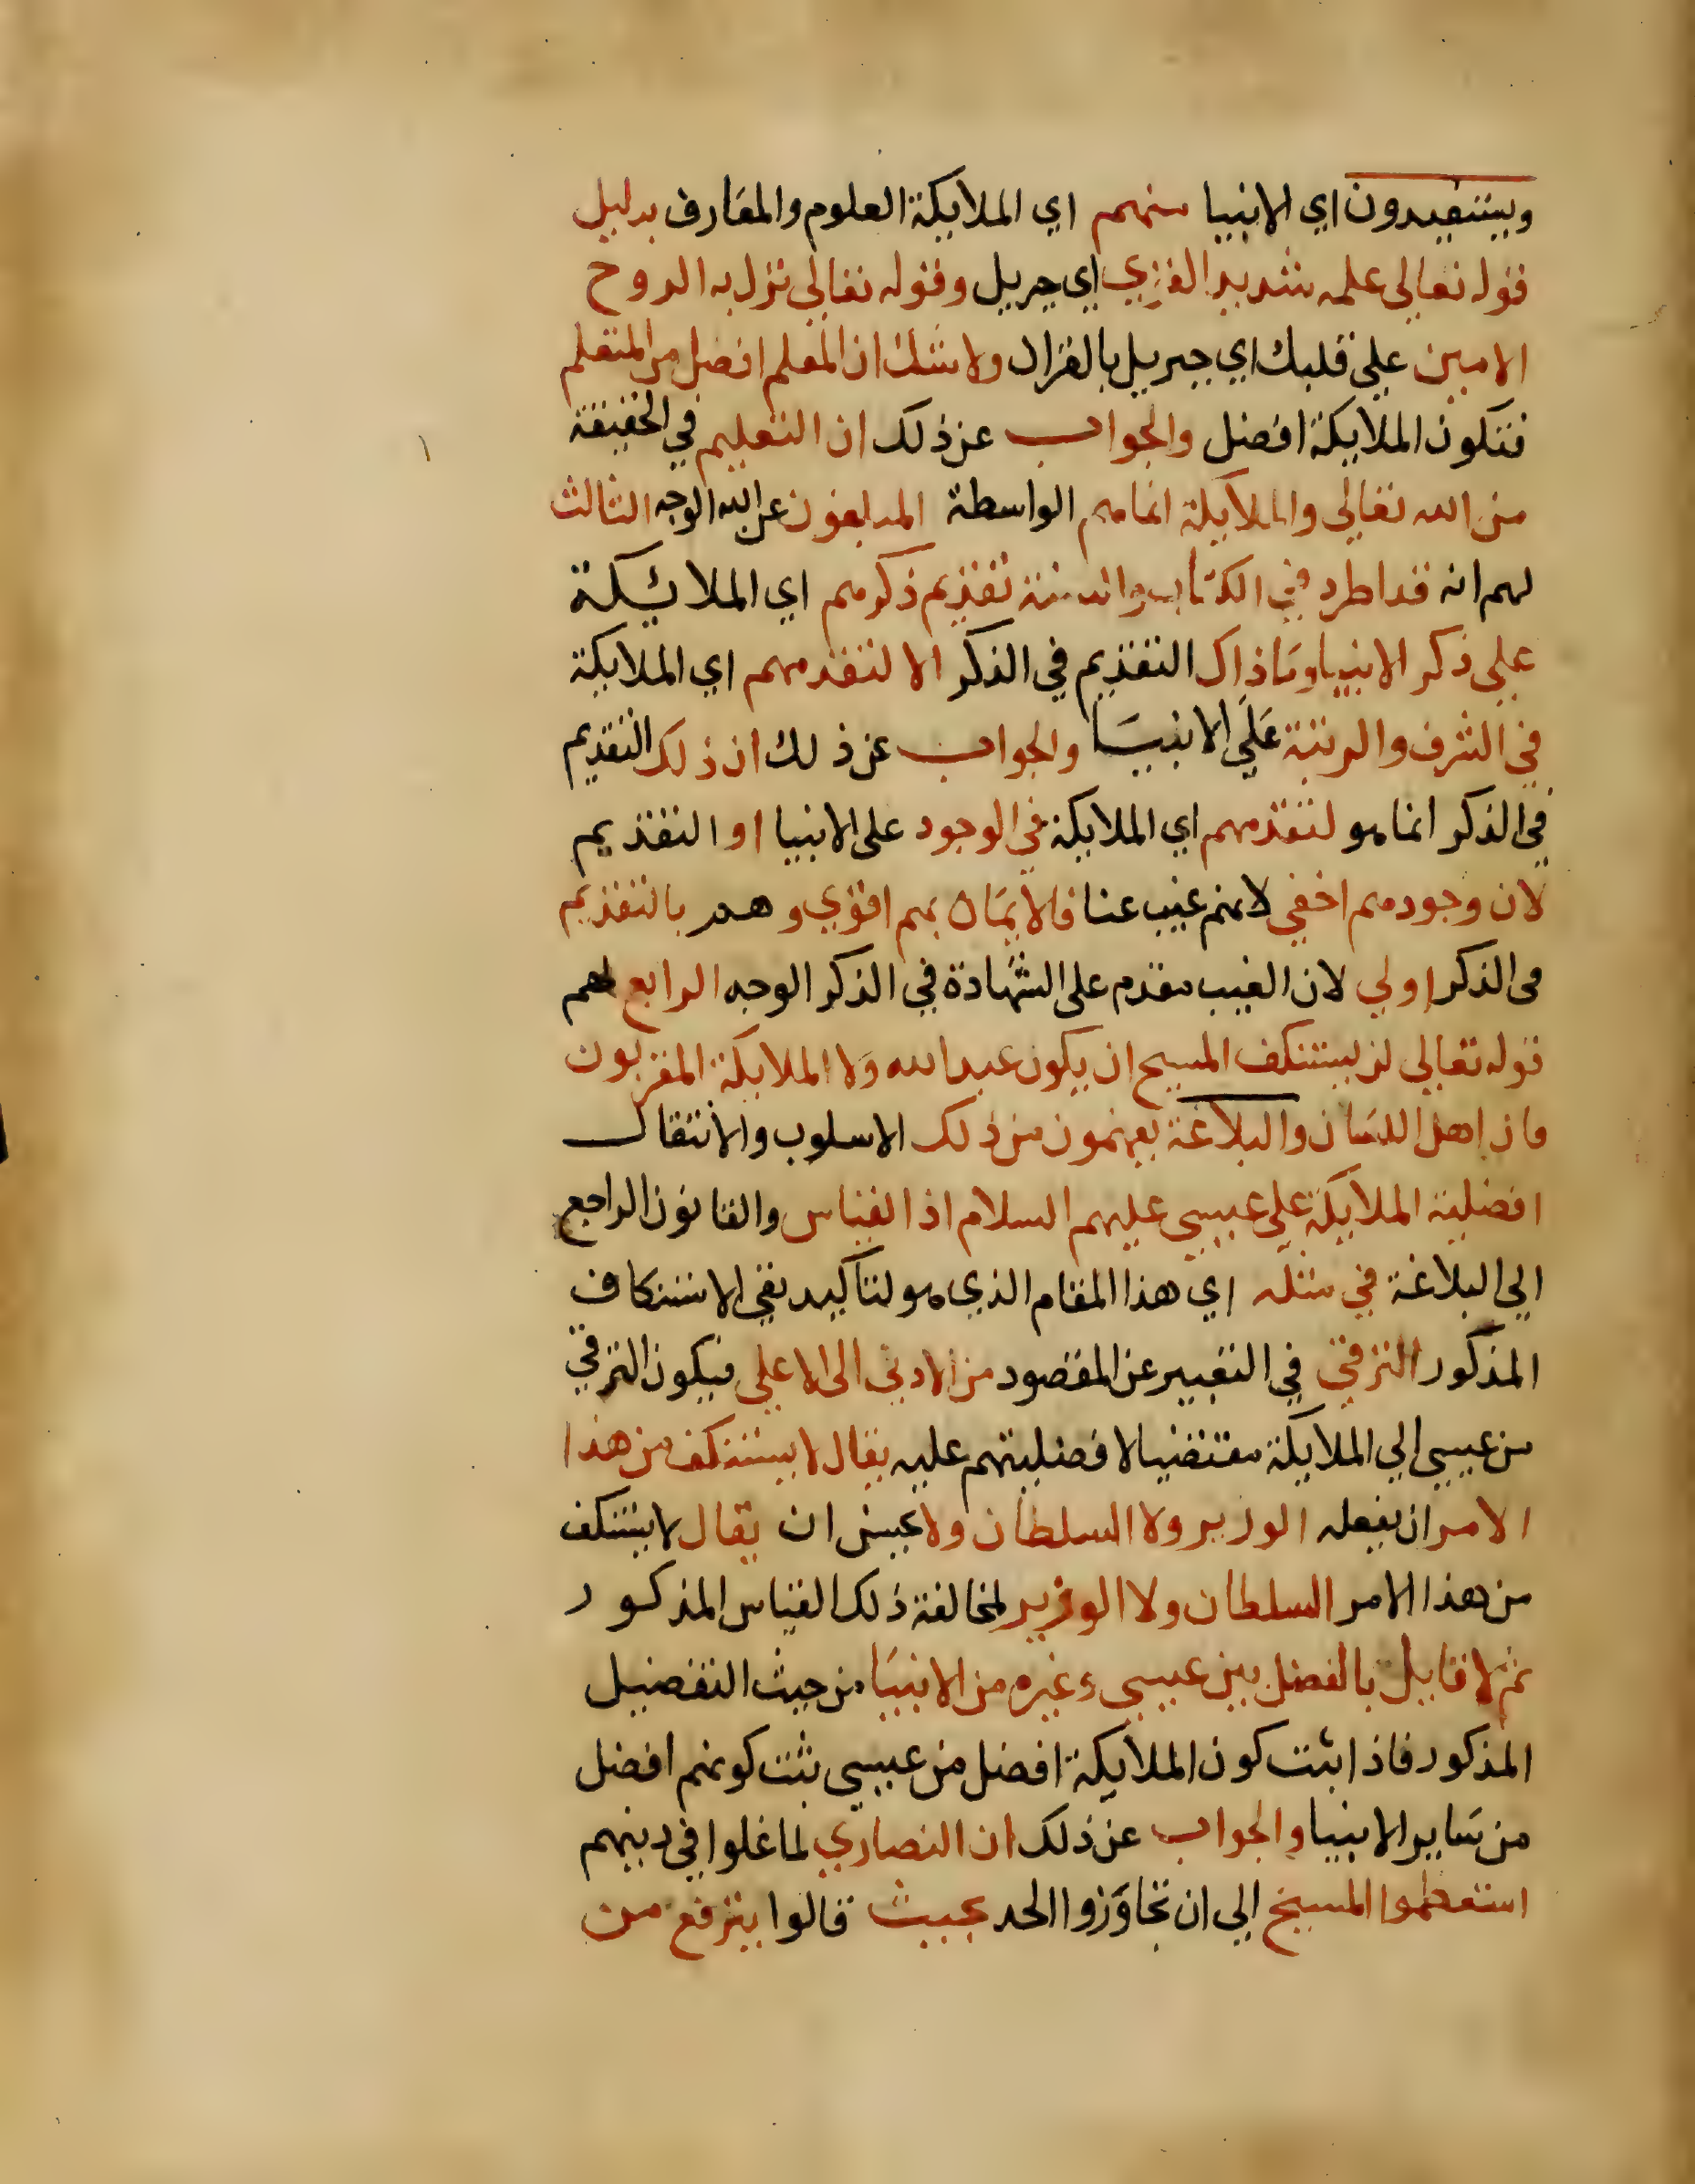 ويستفيدون اي الانبيا منهم اي الملايكة العلوم والمعارف بدليل
قوله تعالى علمه شديد القوي اي جبريل وقوله تعالى نزل به الروح
الامين على قلبك اي جبريل بالقران ولا شك ان المعلم افضل من المتعلم
فتكون الملايكة افضل والجواب عن ذلك ان التعليم في الحقيقة
من الله تعالى والملايكة انما هم الواسطة المبلغون عن الله الوجه الثالث
لهم انه قد اطرد في الكتاب والسنة تقديم ذكرهم اي الملائيكة
على ذكر الانبيا وما ذاك التقديم في الذكر الا لتقدمهم اي الملايكة
في الشرف والرتبة على الانبيا والجواب عن ذلك ان ذلك التقديم
في الذكر انما هو لتقدمهم اي الملايكة في الوجود على الانبيا او التقديم
لان وجودهم اخفي لانهم غيب عنا فالايمان بهم اقوي وهم بالتقديم
في الذكر اولي لان الغيب مقدم على الشهادة في الذكر الوجه الرابع لهم
قوله تعالى لن يستنكف المسيح ان يكون عبدا لله ولا الملايكة المقربون
فان اهل اللسان والبلاغة يفهمون من ذلك الاسلوب والانتقال
افضلية الملايكة على عيسي عليهم السلام اذ القياس والقانون الراجع
الي البلاغة في مثله اي هذا المقام الذي هو لتاكيد نفي الاستنكاف
المذكور الترقي في التعبير عن المقصود من الادني الى الاعلي فيكون الترقي
من عيسي الي الملايكة مقتضيا لافضليتهم عليه يقال لا يستنكف من هذا
الامر ان يفعله الوزير ولا السلطان ولا يحسن ان يقال لا يستنكف
من هذا الامر السلطان ولا الوزير لمخالفة ذلك القياس المذكور
ثم لا قايل بالفضل بين عيسي وغيره من الانبيا من حيث التفضيل
المذكور فاذا ثبت كون الملايكة افضل من عيسي ثبت كونهم افضل
من ساير الانبيا والجواب عن ذلك ان النصاري لما غلوا في دينهم
استعظموا المسيح الي ان تجاوزوا الحد بحيث قالوا يترفع من